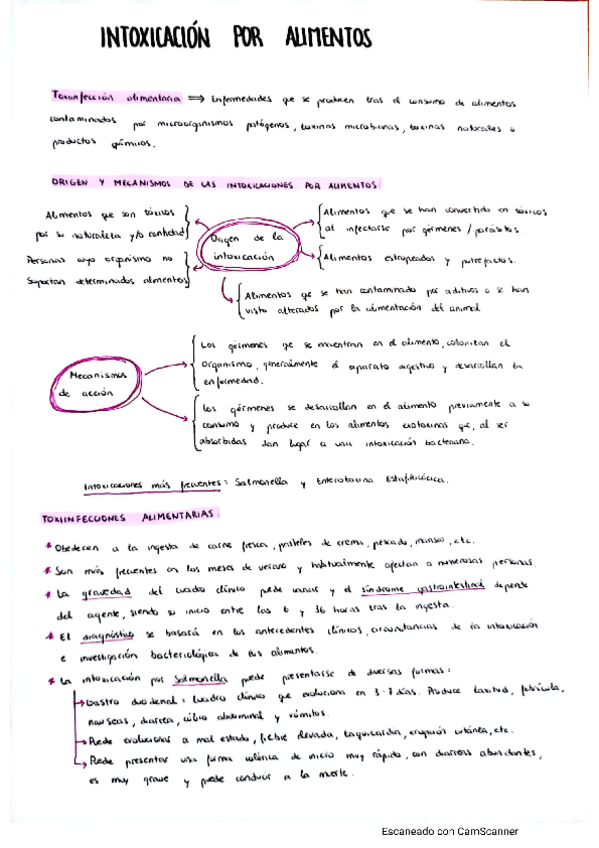 INTOXICACIÓN POR ALIMENTOS
Toxiinfección alimentaria ⟹ Enfermedades que se producen tras el consumo de alimentos
contaminados por microorganismos patógenos, toxinas microbianas, toxinas naturales o
productos químicos.
ORIGEN Y MECANISMOS DE LAS INTOXICACIONES POR ALIMENTOS
Alimentos que son tóxicos
por su naturaleza y/o cantidad
Personas cuyo organismo no
soportan determinados alimentos
Origen de la
intoxicación
Alimentos que se han convertido en tóxicos
al infectarse por gérmenes / parásitos.
Alimentos estropeados y putrefactos.
Alimentos que se han contaminado por aditivos o se han
visto alterados por la alimentación del animal
Mecanismos
de acción
Los gérmenes que se encuentran en el alimento, colonizan el
organismo, generalmente el aparato digestivo y desarrollan la
enfermedad.
Los gérmenes se desarrollan en el alimento previamente a su
consumo y produce en los alimentos exotoxinas que, al ser
absorbidas dan lugar a una intoxicación bacteriana.
Intoxicaciones más frecuentes: Salmonella y Enterotoxina Estafilocócica.
TOXIINFECCIONES ALIMENTARIAS
* Obedecen a la ingesta de carne fresca, pasteles de crema, pescado, marisco, etc.
* Son más frecuentes en los meses de verano y habitualmente afectan a numerosas personas.
* La gravedad del cuadro clínico puede variar y el síndrome gastrointestinal depende
del agente, siendo su inicio entre las 6 y 36 horas tras la ingesta.
* El diagnóstico se basará en los antecedentes clínicos, circunstancias de la intoxicación
e investigación bacteriológica de los alimentos.
* La intoxicación por Salmonella puede presentarse de diversas formas:
Gastro duodenal: Cuadro clínico que evoluciona en 3-7 días. Produce laxitud, febrícula,
nauseas, diarrea, cólico abdominal y vómitos.
Puede evolucionar a mal estado, fiebre elevada, taquicardia, erupción cutánea, etc.
Puede presentar una forma colérica de inicio muy rápido, con diarreas abundantes,
es muy grave y puede conducir a la muerte.
Escaneado con CamScanner